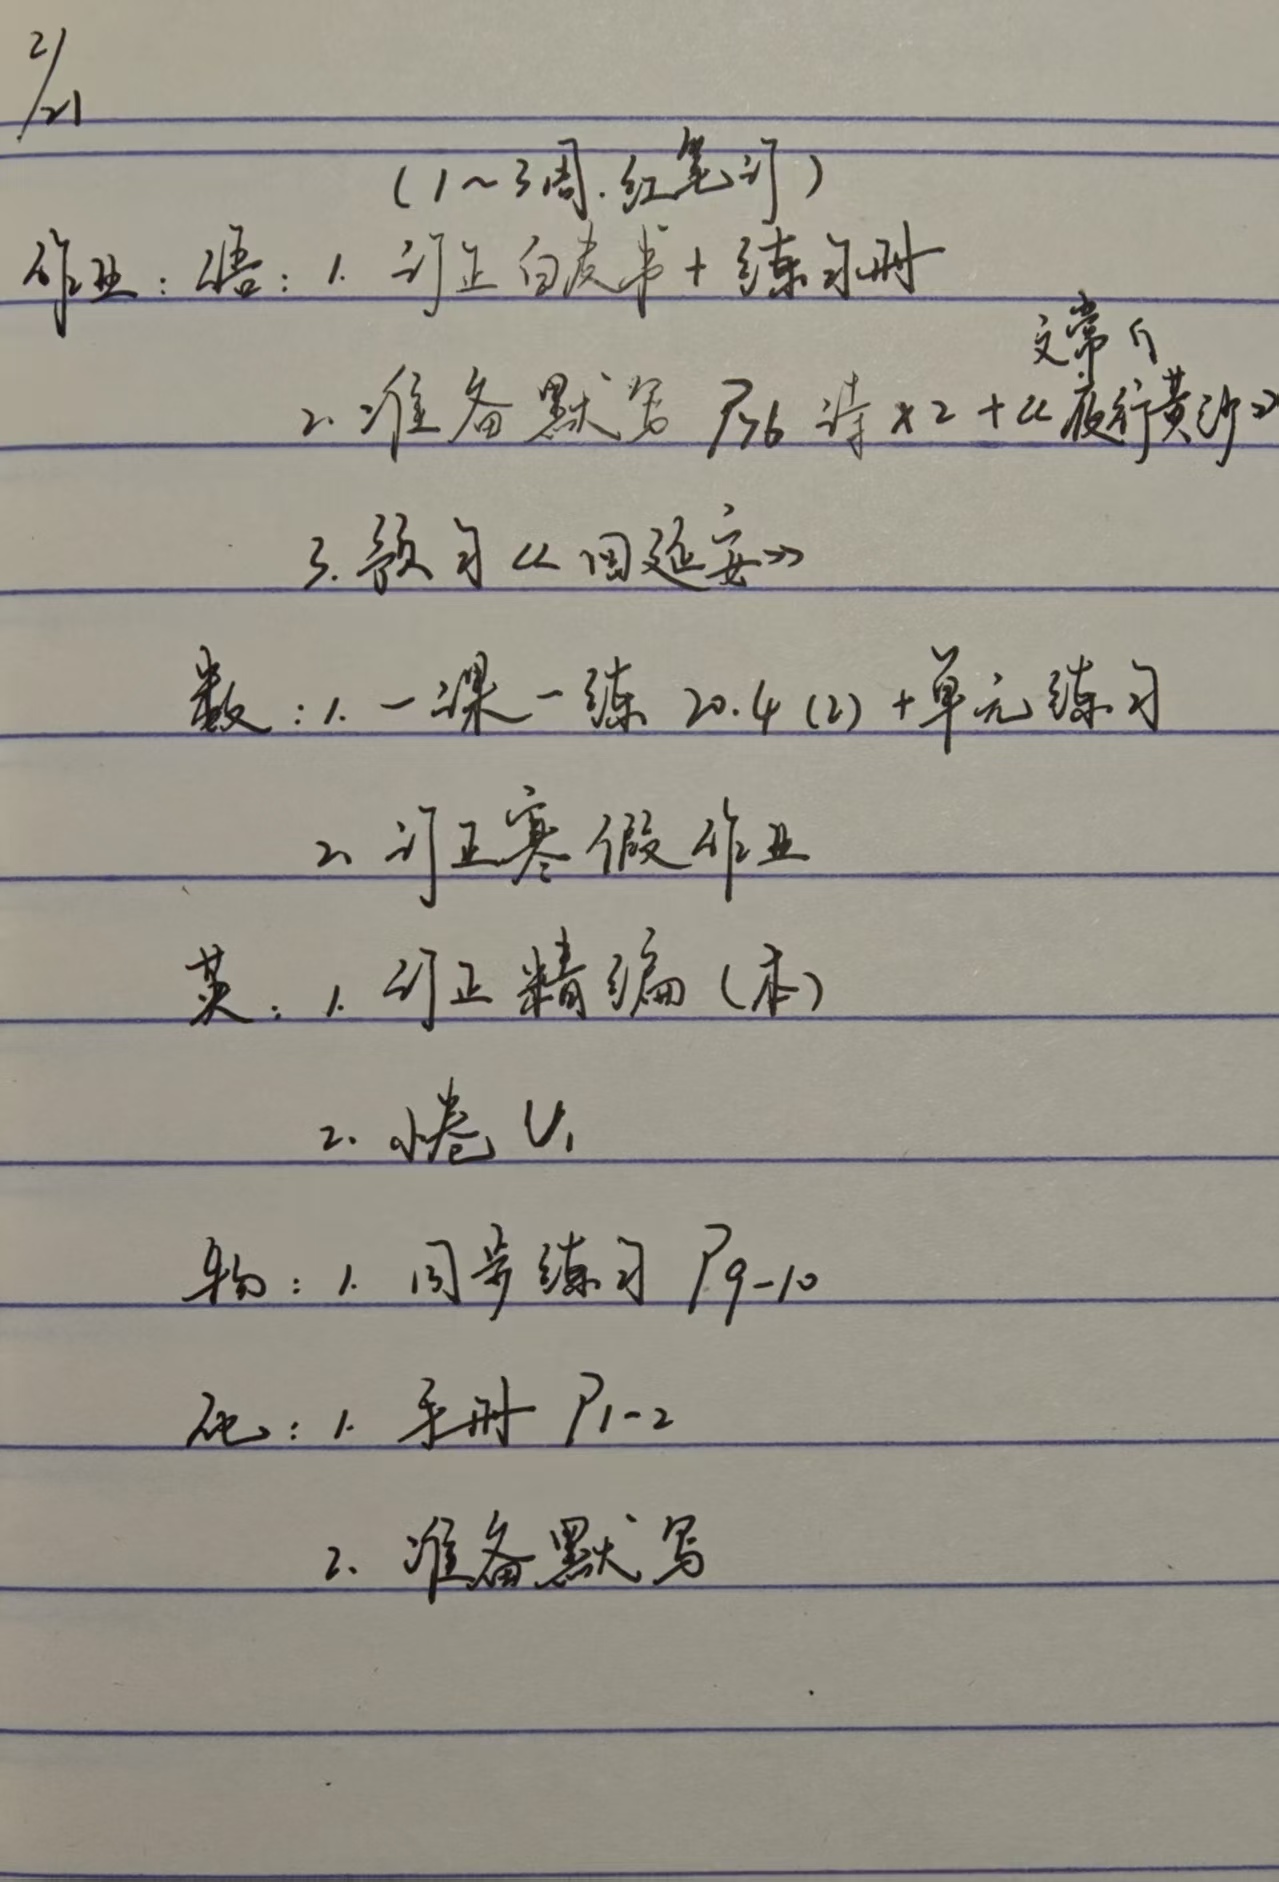 2/21
(1～3周.红笔订)
作业:语:1.订正白皮书+练习册
文常
2.准备默写 P36 诗×2+《夜行黄沙》
3.预习《回延安》
数:1.一课一练 20.4(2)+单元练习
2.订正寒假作业
英:1.订正精编(本)
2.小卷U1
物:1.同步练习 P9-10
化:1.手册 P1-2
2.准备默写